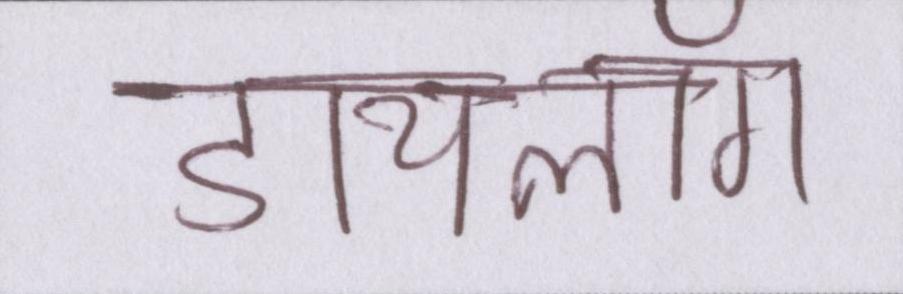 डायलॉग